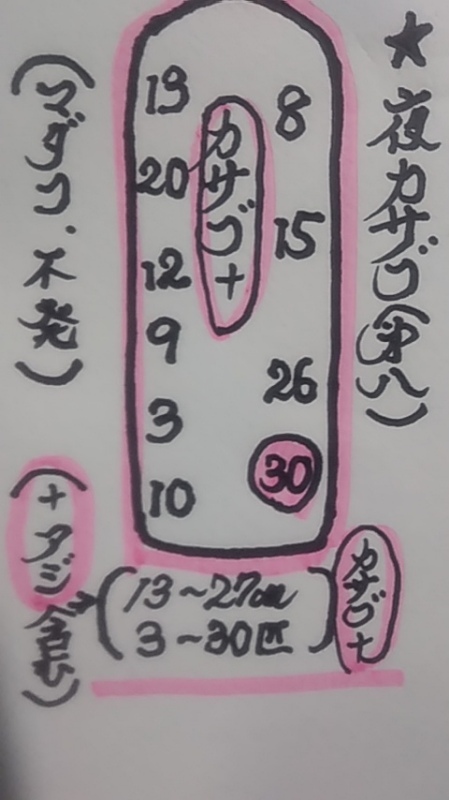 ★夜カサゴ(第八)
8
15
26
30
カサゴ+
13
20
12
9
3
10
(マダコ、不発)
カサゴ+
(13～27cm
3～30匹)
(+含む)